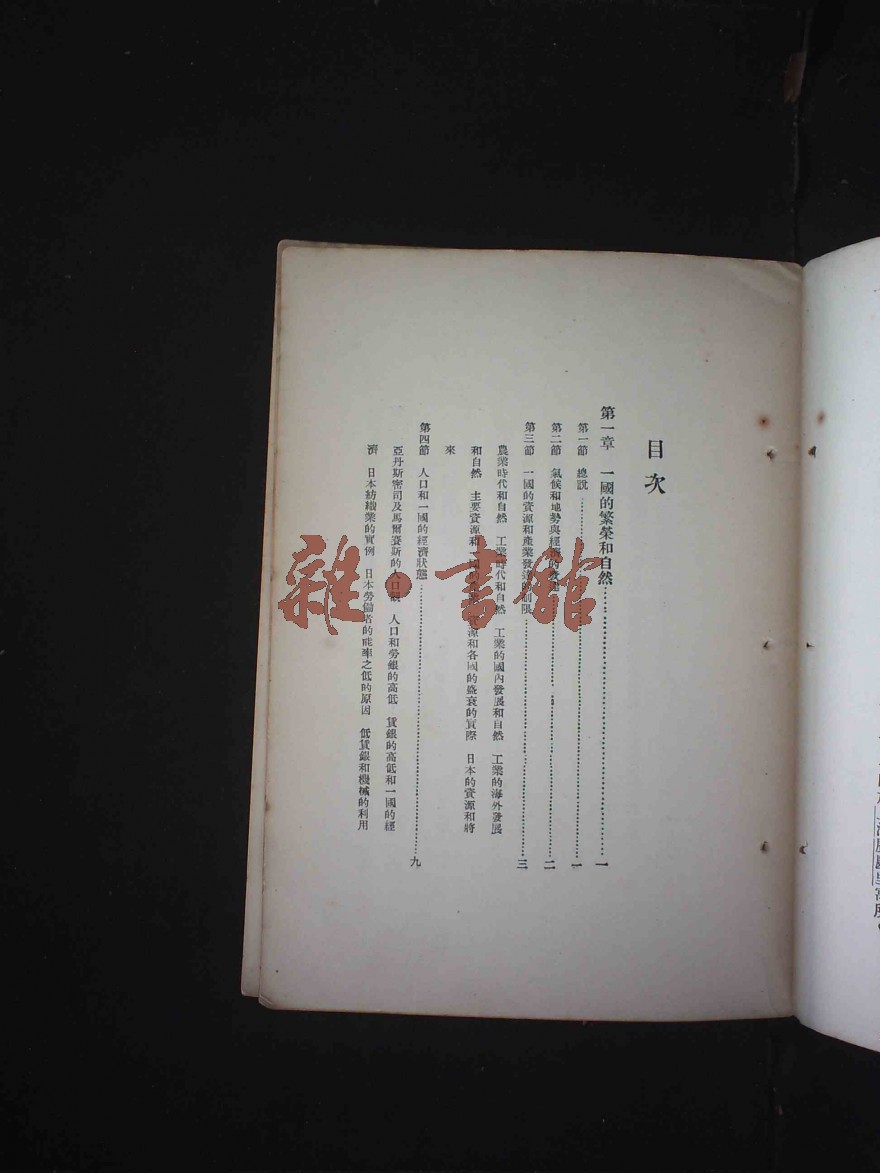 目次
第一章 一國的繁榮和自然……一
第一節 總說……一
第二節 氣候和地勢與經濟的發……二
第三節 一國的資源和產業發達的制限……三
農業時代和自然 工業時代和自然 工業的國內發展和自然 工業的海外發展
和自然 主要資源和一國的 資源和各國的盛衰的實際 日本的資源和將
來
第四節 人口和一國的經濟狀態……九
亞丹斯密司及馬爾賽斯的人口觀 人口和勞銀的高低 賃銀的高低和一國的經
濟 日本紡織業的實例 日本勞働者的能率之低的原因 低賃銀和機械的利用
雜·書館